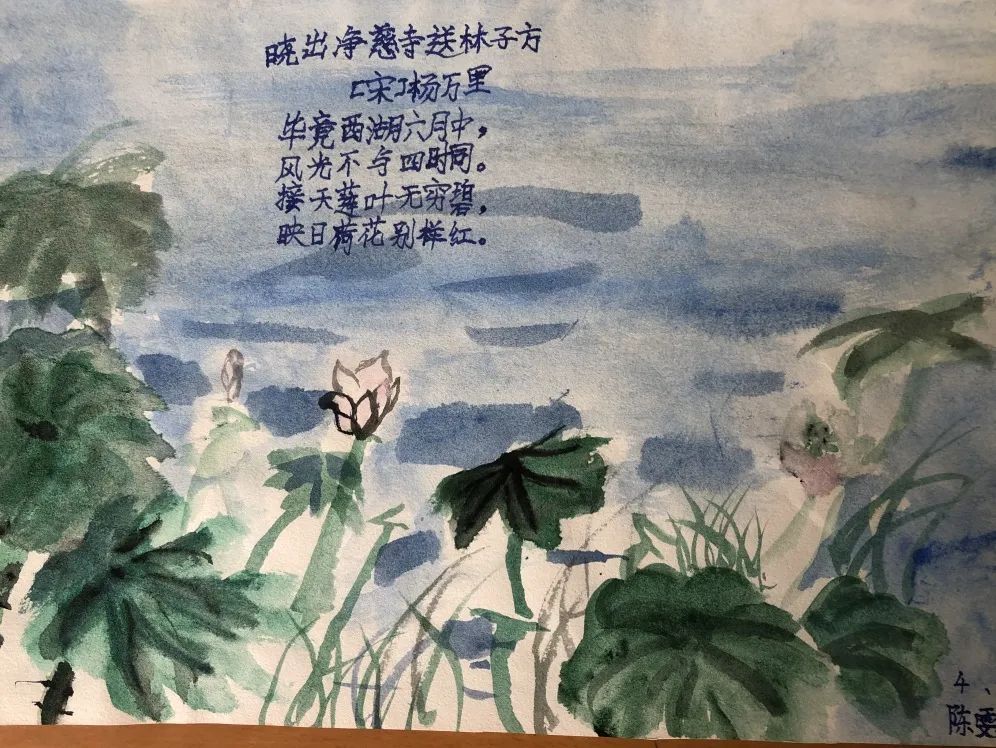 晓出净慈寺送林子方
[宋]杨万里
毕竟西湖六月中，
风光不与四时同。
接天莲叶无穷碧，
映日荷花别样红。
4、
陈雯